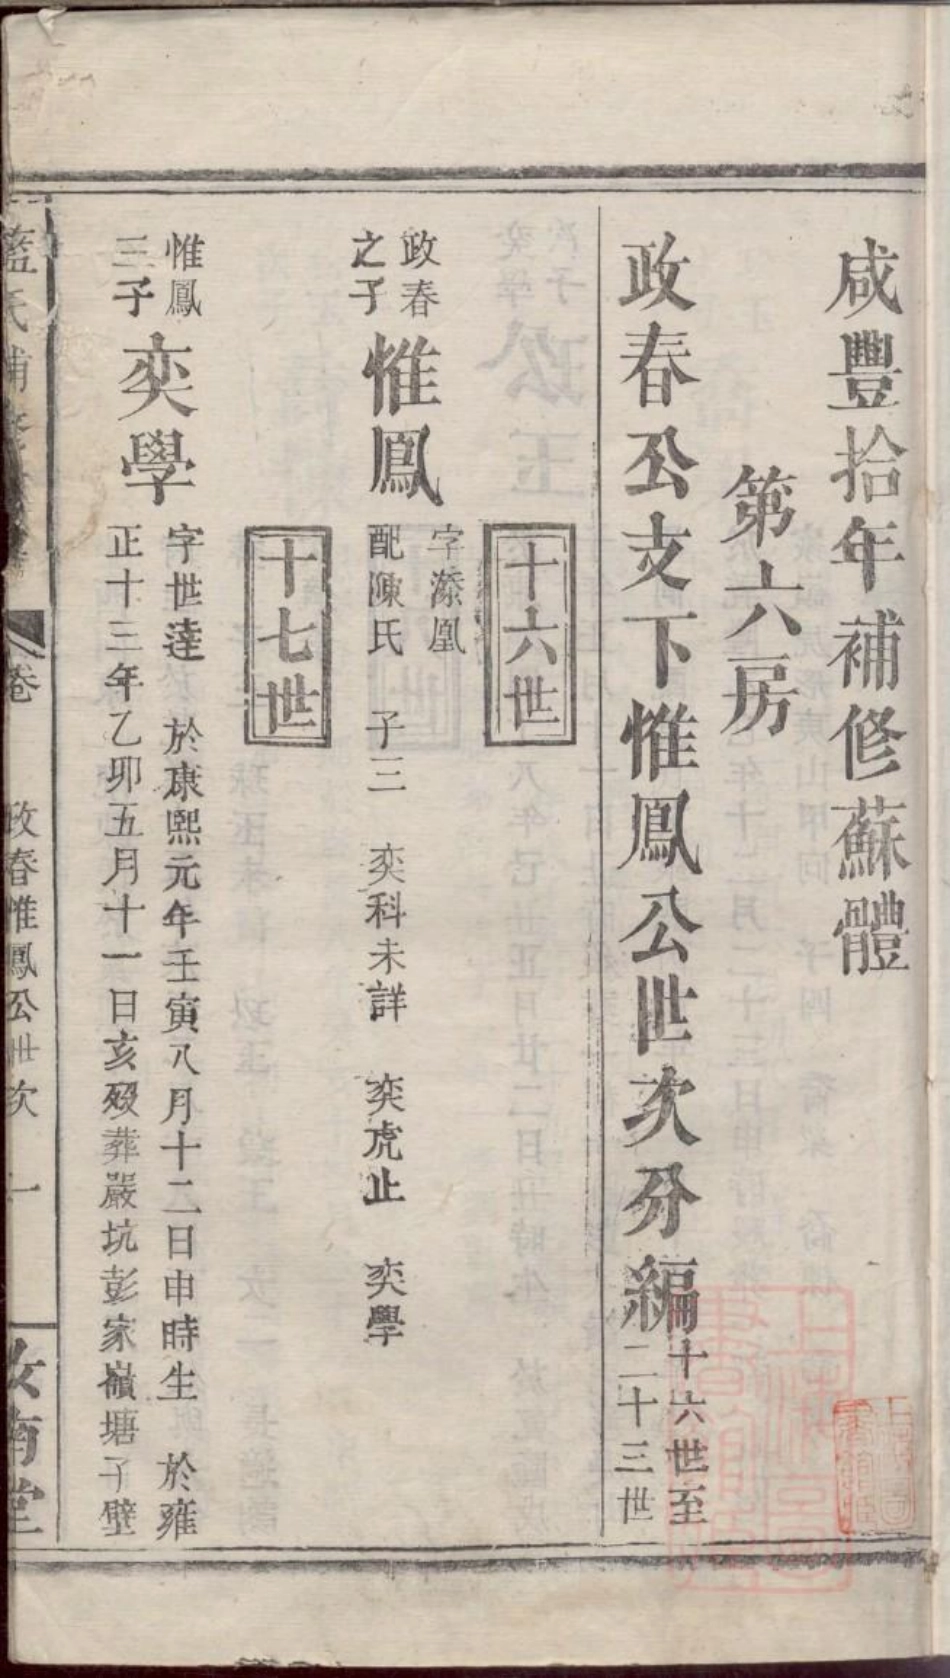 咸豐拾年補修蘇體
第六房
政春公支下惟鳳公世次分編
十六世至
二十三世
十六世
政春
之子
惟鳳
字添凰
配陳氏 子三 奕科未詳 奕虎止 奕學
十七世
惟鳳
三子
奕學
字世達 於康熙元年壬寅八月十二日申時生 於雍
正十三年乙卯五月十一日亥歿葬嚴坑彭家嶺塘子壁
藍氏補修
卷
政春惟鳳公世次
一
汝南堂